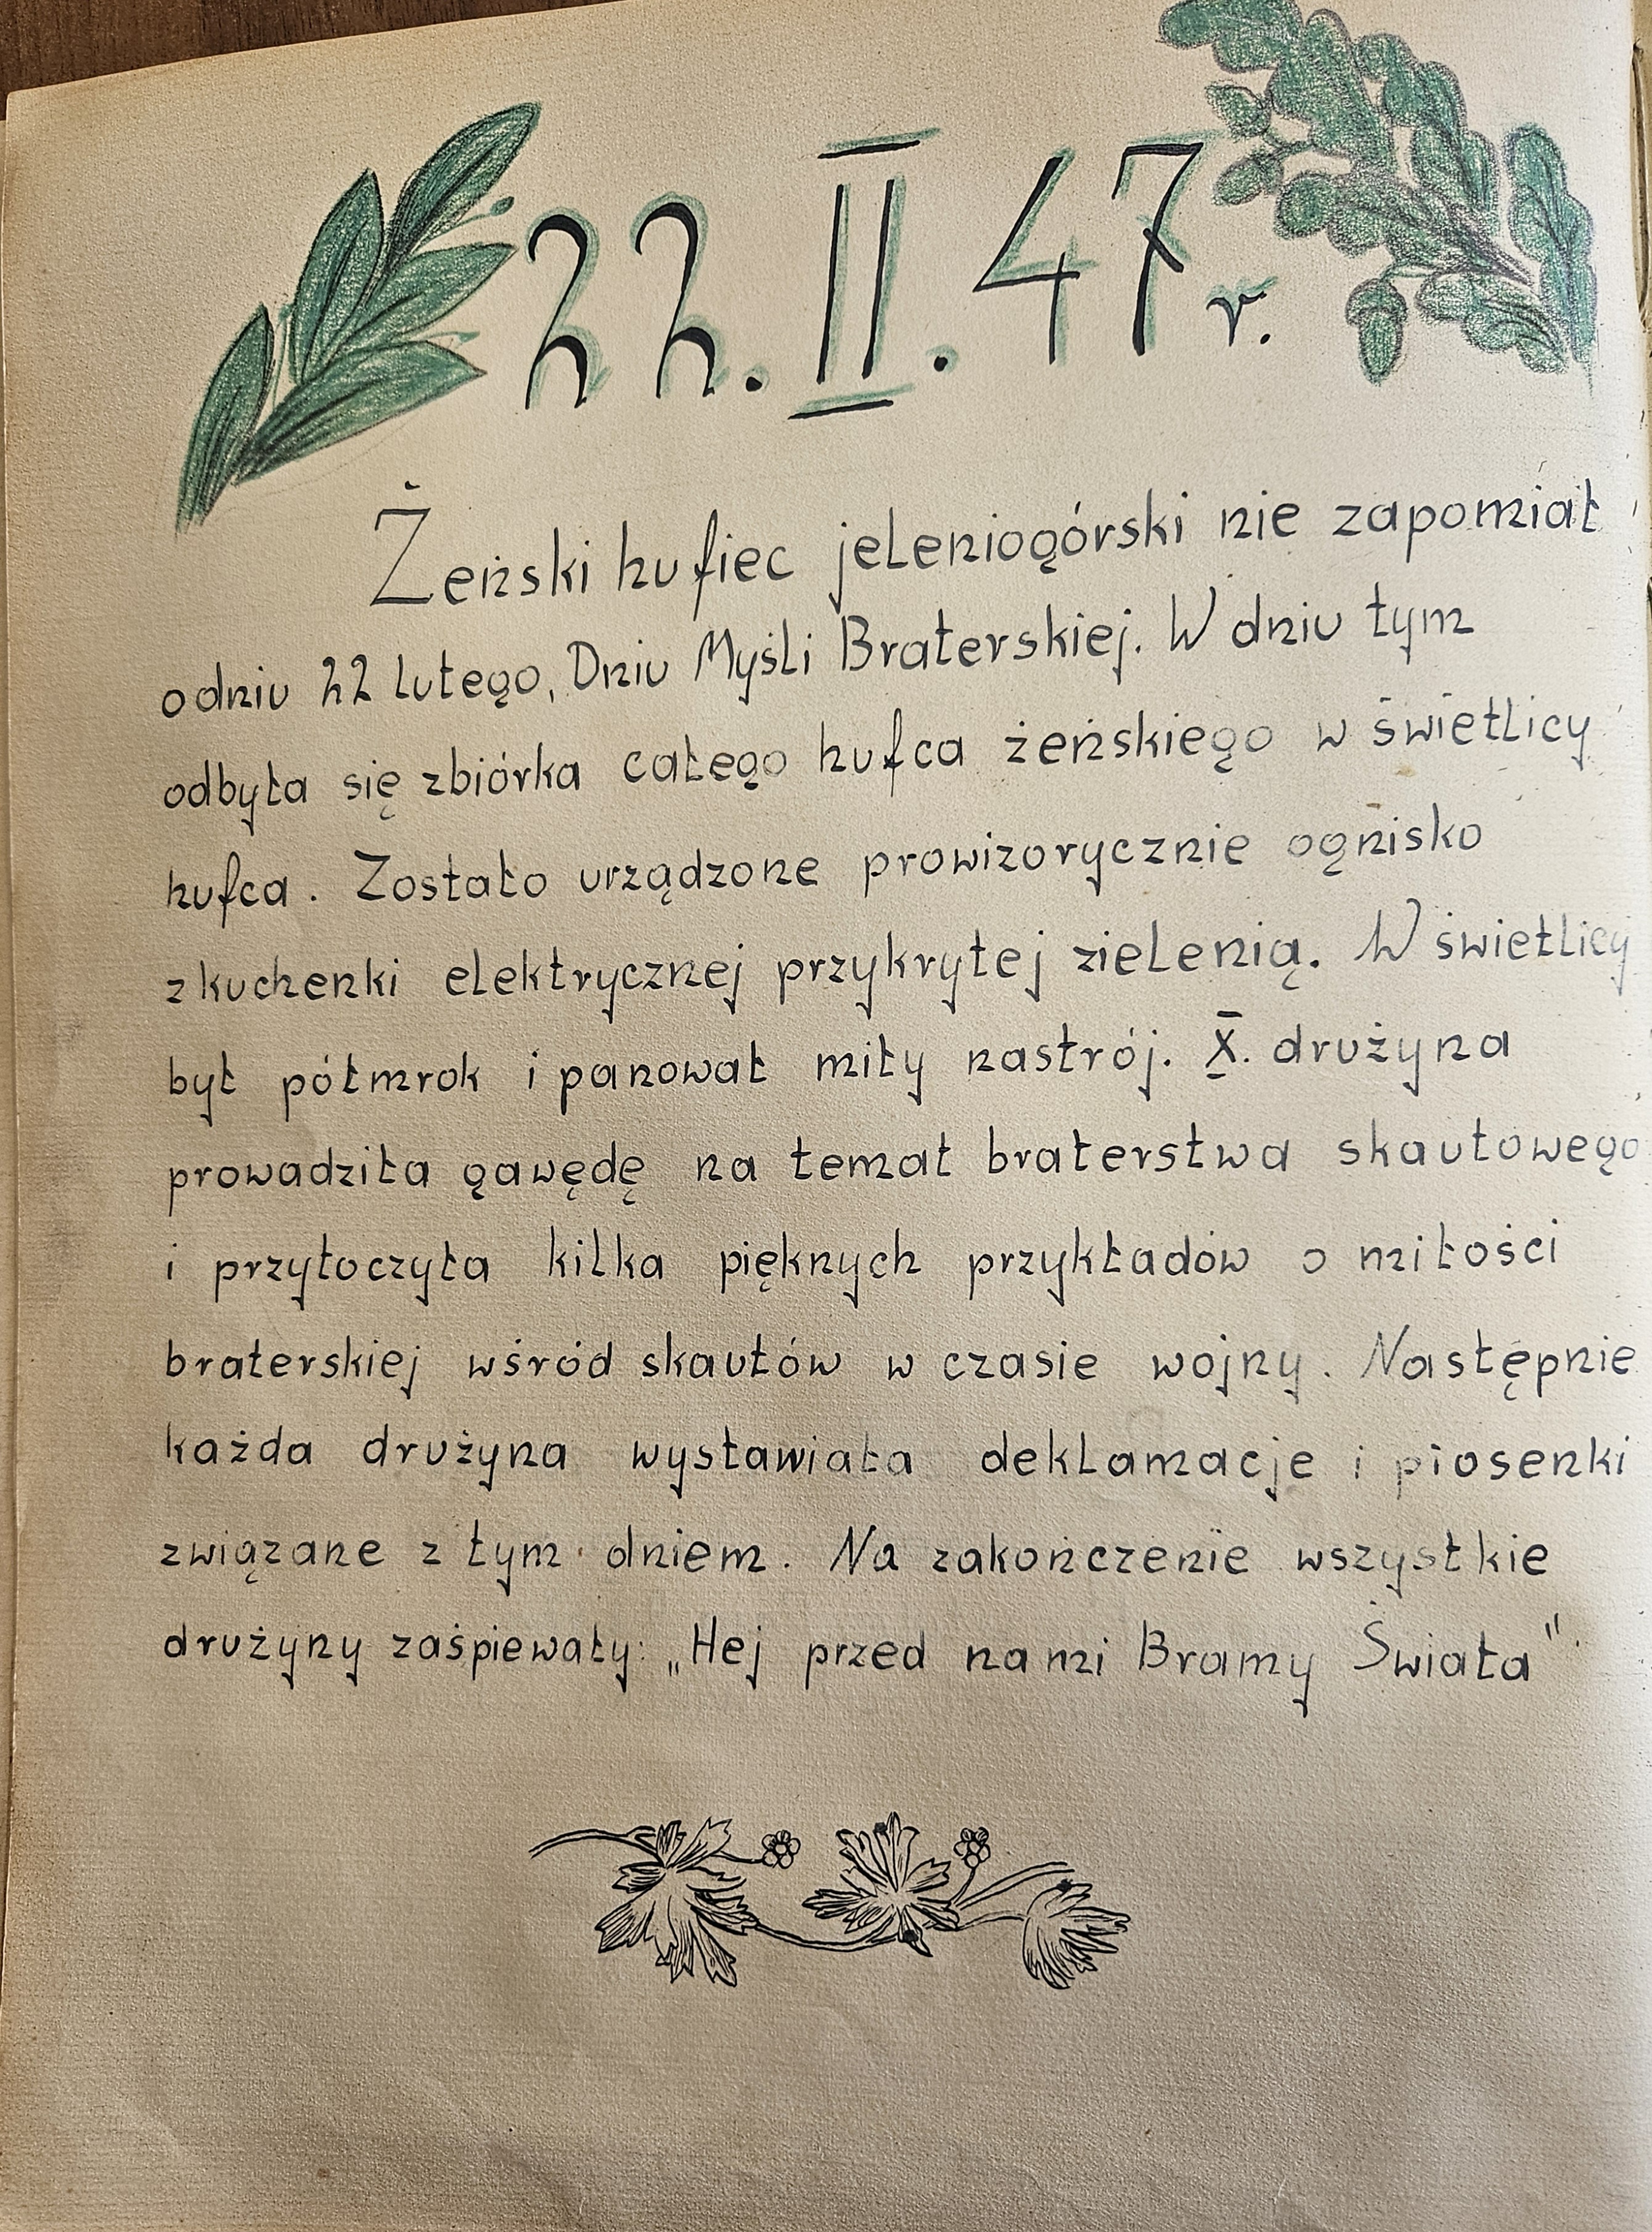 22.II.47r.
Żeński hufiec jeleniogórski nie zapomiał
o dniu 22 lutego, Dniu Myśli Braterskiej. W dniu tym
odbyła się zbiórka całego hufca żeńskiego w świetlicy
hufca. Zostało urządzone prowizorycznie ognisko
z kuchenki elektrycznej przykrytej zielenią. W świetlicy
był półmrok i panował miły nastrój. X. drużyna
prowadziła gawędę na temat braterstwa skautowego
i przytoczyła kilka pięknych przykładów o miłości
braterskiej wśród skautów w czasie wojny. Następnie
każda drużyna wystawiała deklamacje i piosenki
związane z tym dniem. Na zakończenie wszystkie
drużyny zaśpiewały: „Hej przed nami Bramy Świata".